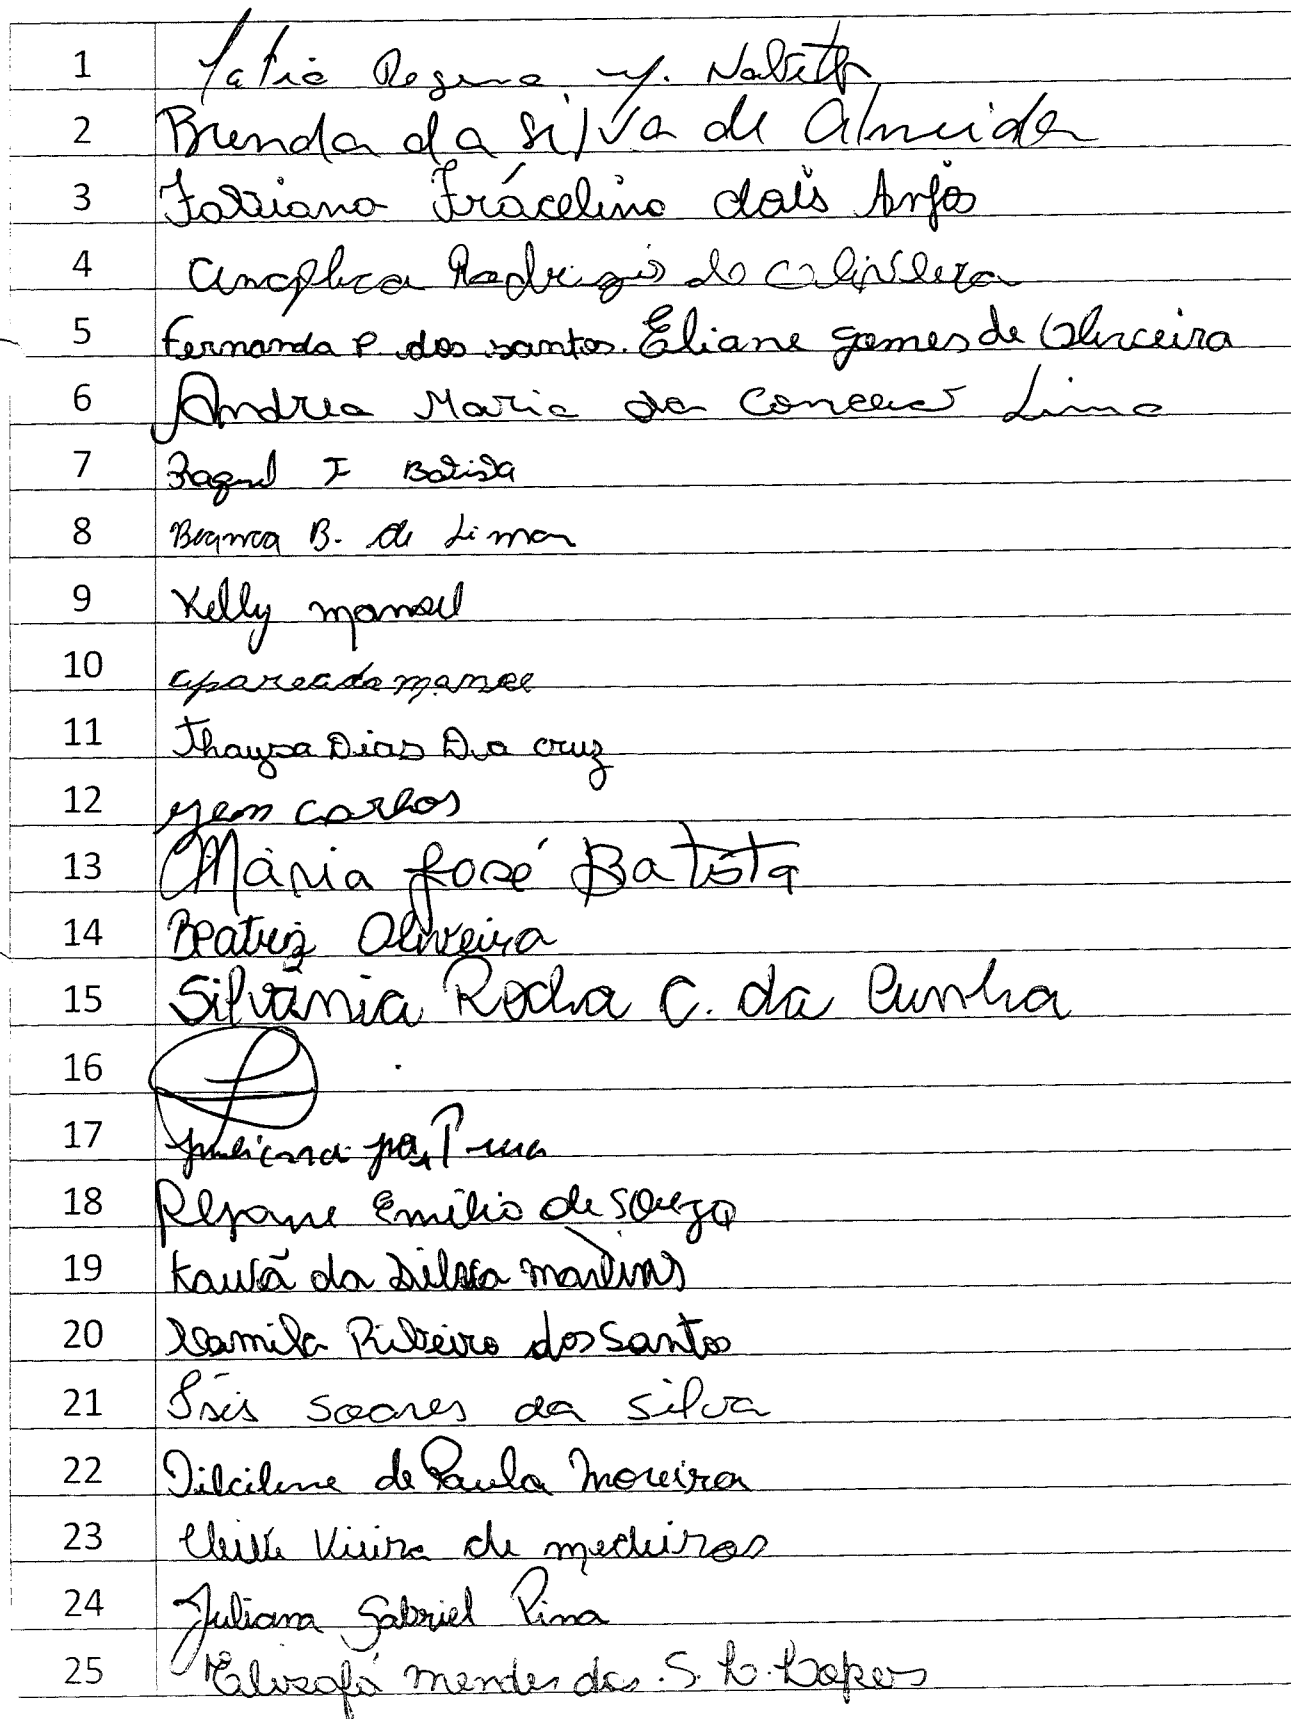 1 Regina M.
2 Brenda da silva de Almeida
3 Fabiano dos Anjos
4 Rodrigues de
5 Fernanda P. dos santos. Eliane gomes de Oliveira
6 Andrea Maria da Lima
7 Raquel F Batista
8 Bianca B. de Lima
9 Kelly manoel
10
11 Thaysa Dias Da cruz
12 carlos
13 Maria José Batista
14 Beatriz Oliveira
15 Silvânia Rocha C. da Cunha
16
17 Juliana
18 Rejane Emilio de Souza
19 Kauã da Silva martins
20 Kamila Ribeiro dos Santos
21 Isis Soares da Silva
22 Dilcilene de Paula Moreira
23 Vieira de medeiros
24 Juliana Gabriel Pina
25 mendes S. L. Lopes